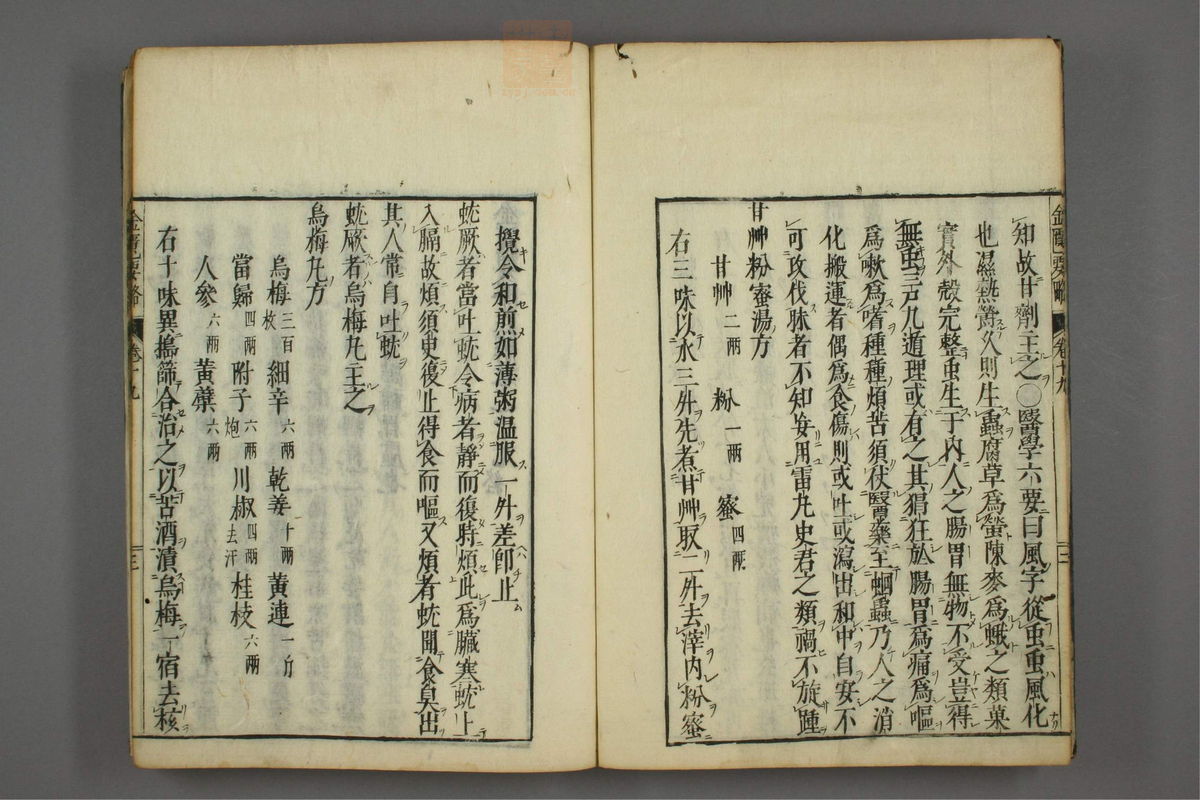 知故甘劑主之○醫學六要曰風字從虫虫風化
也濕熱鬱久則生蟲腐草爲螢陳麥爲蛾之類菓
實外殼完整虫生于内人之腸胃無物不受豈得
無虫三尸九道理或有之其猖狂於腸胃爲痛爲嘔
爲嗽爲嗜種種煩苦須伏醫藥至蛔蟲乃人之消
化搬運者偶爲食傷則或吐或瀉出和中自安不
可攻伐昧者不知妄用雷丸史君之類禍不旋踵
甘艸粉蜜湯方
甘艸二兩 粉一兩 蜜四兩
右三味以水三升先煮甘艸取二升去滓内粉蜜
金匱要略 卷十九 二
攪令和煎如薄粥温服一升差卽止
蚘厥者當吐蚘令病者靜而復時煩此爲臟寒蚘上
入膈故煩須臾復止得食而嘔又煩者蚘聞食臭出
其人常自吐蚘
蚘厥者烏梅丸主之
烏梅丸方
烏梅三百枚 細辛六兩 乾姜十兩 黄連一斤
當歸四兩 附子六兩炮 川椒四兩去汗 桂枝六兩
人參六兩 黄蘗六兩
右十味異搗篩合治之以苦酒漬烏梅一宿去核
金匱要略 卷十九 三